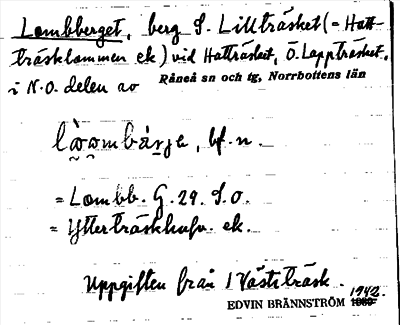 Lombberget, berg S. Lillträsket (= Hatt-
träsklammen ek) vid Hatträsket, Ö. Lappträsket,
i N.O. delen av Råneå sn och tg, Norrbottens län
bf. n.
= Lombb. G. 29. S.O.
= Ytterträskhuv. ek.
Uppgiften från V Västiträsk.
EDVIN BRÄNNSTRÖM 1942.